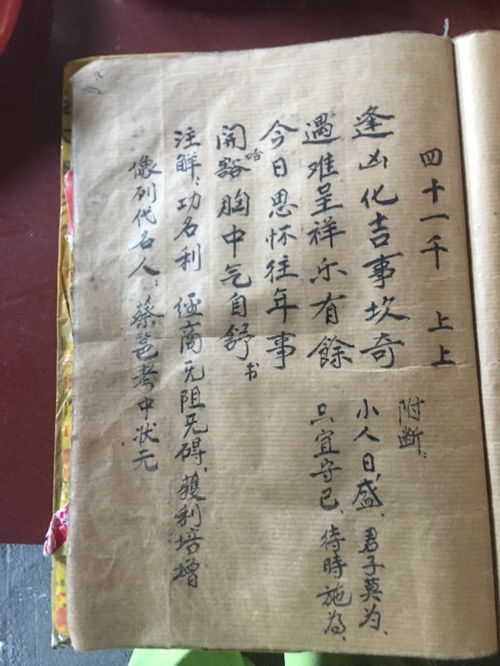 四十一千 上上
逢凶化吉事坎奇
遇难呈祥乐有餘
今日思怀往年事
開豁胸中气自舒
哈
书
附断:
小人日盛、君子莫为、
只宜守己、待時施为、
注解:功名利 经商无阻无碍,獲利培增
像列代名人:蔡邕考中状元